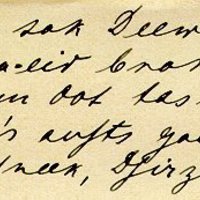 sak Deew
a-eid brok
un dot tas
's aufts ga
dneek, Djirz